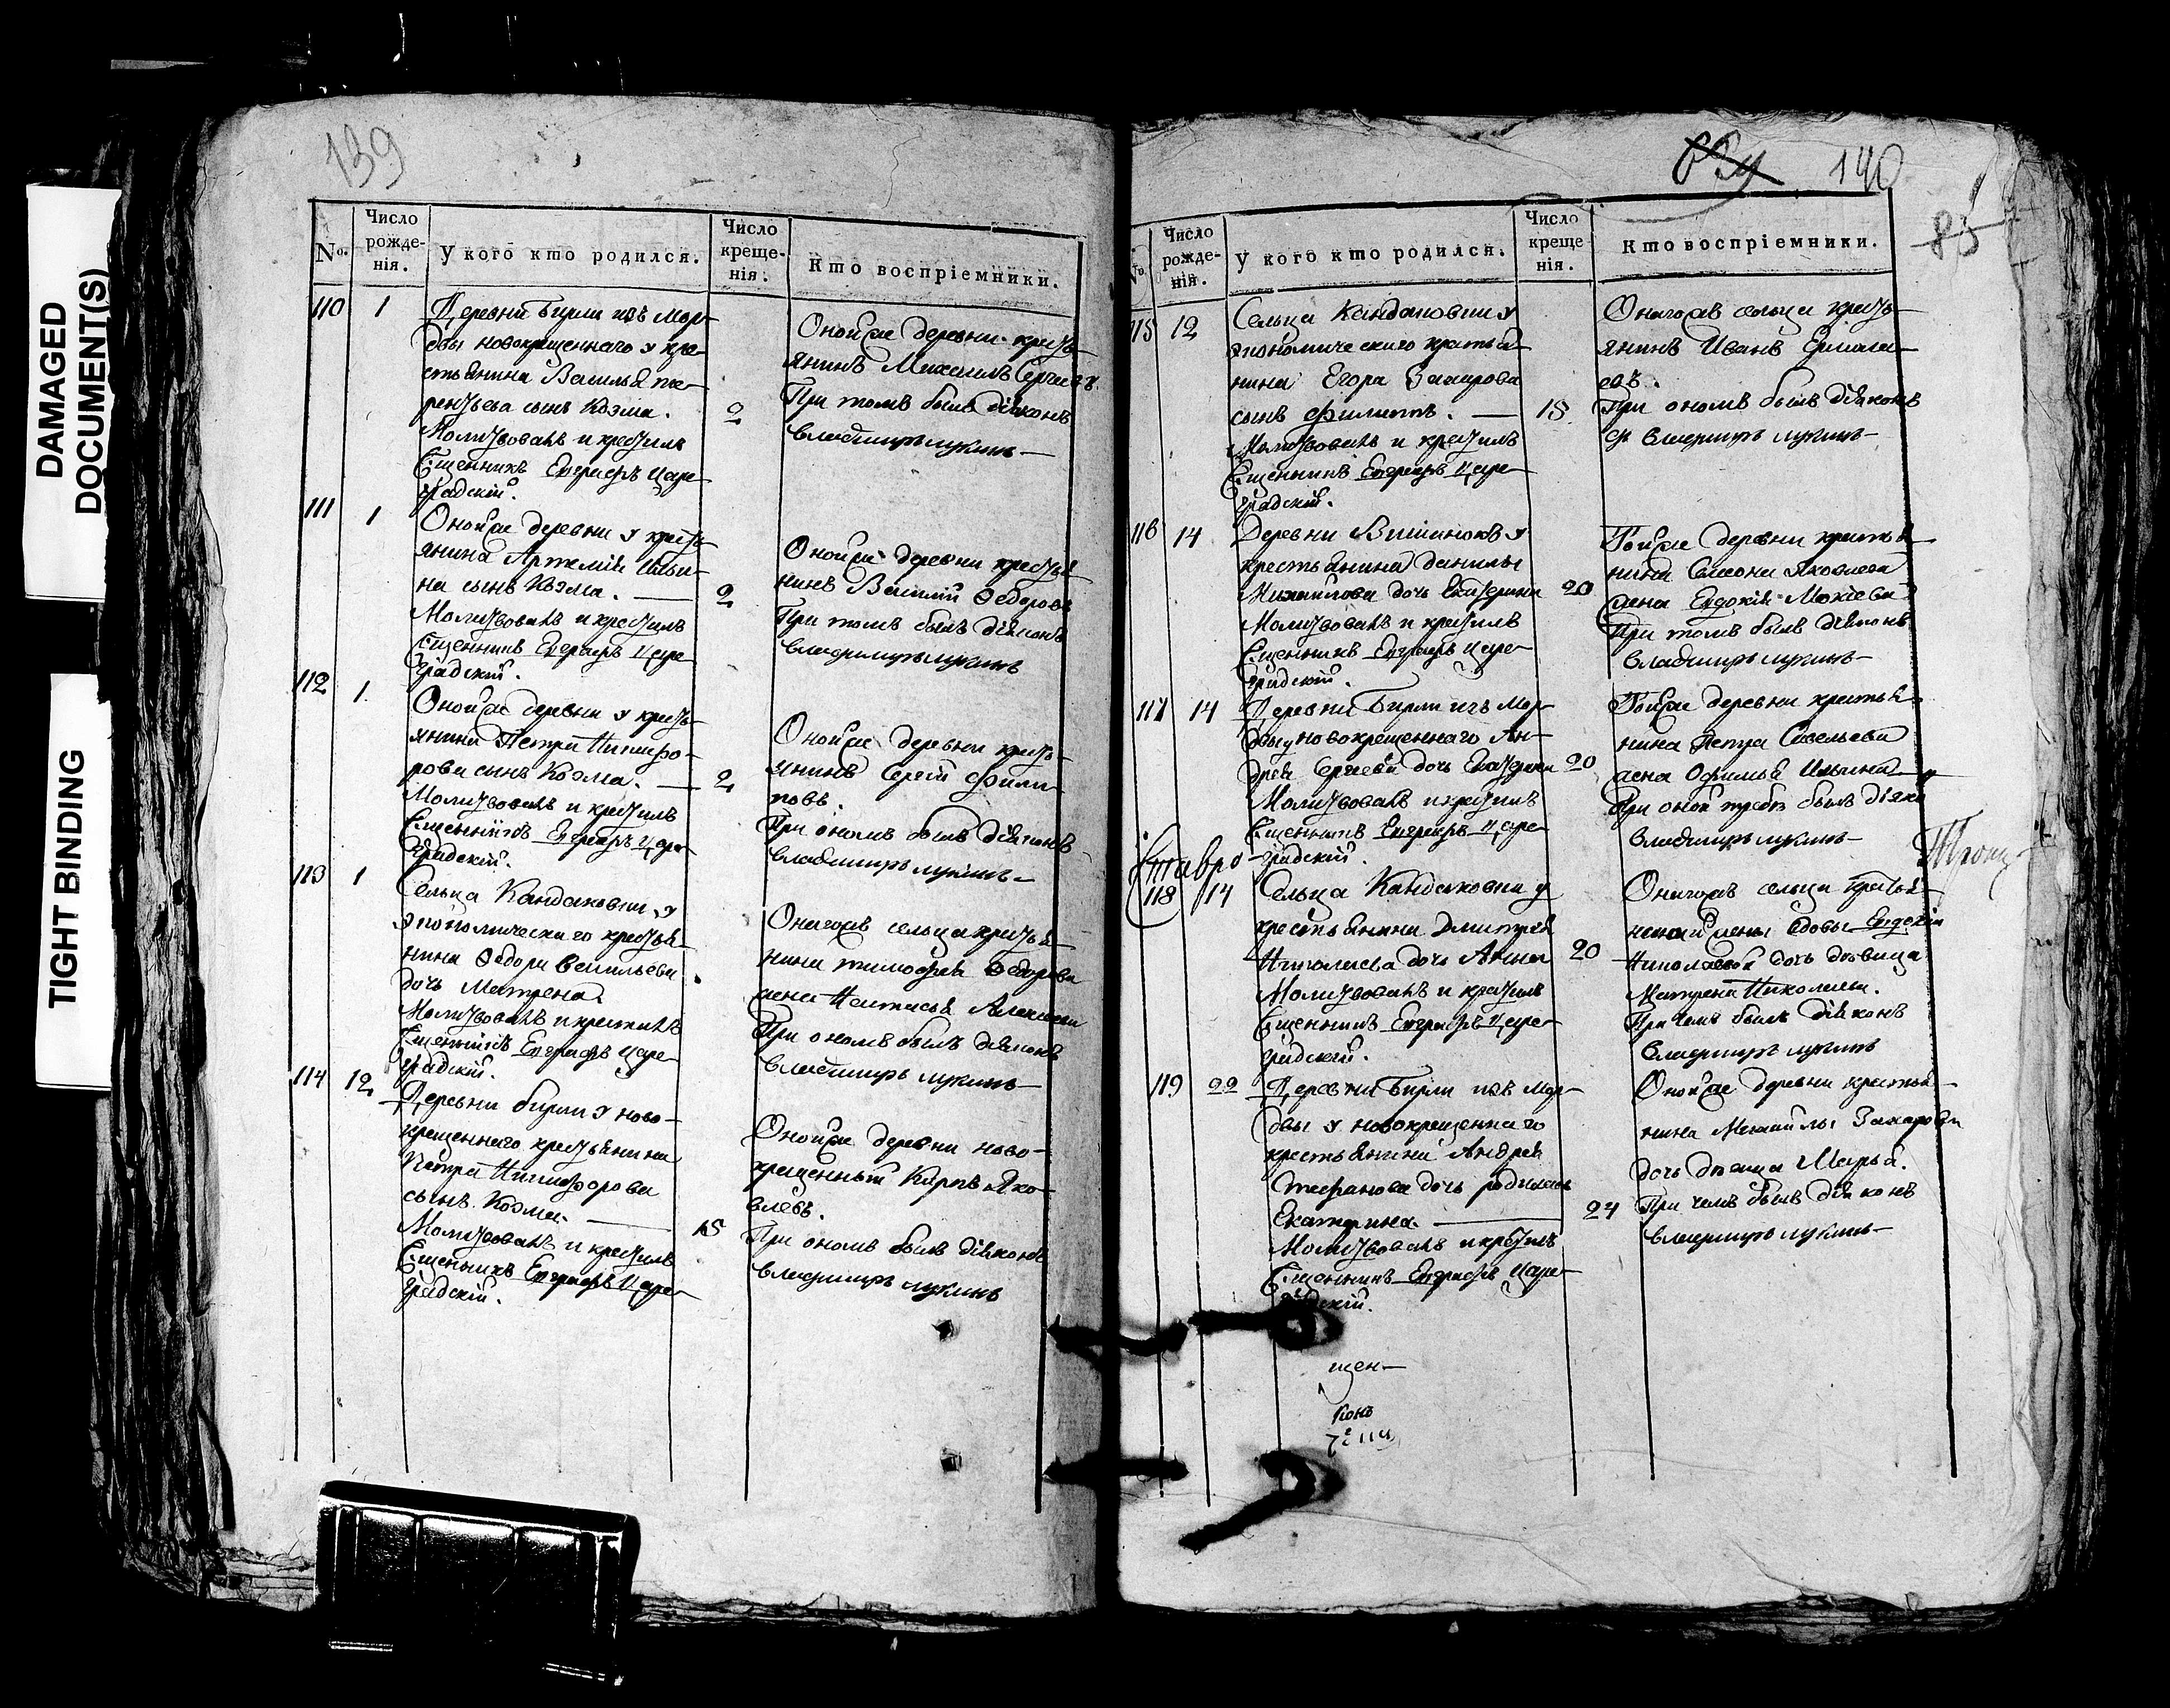 DAMAGED
DOCUMENT(S)
TIGHT BINDING
139
No.
Число
рожде-
нія.
У кого кто родился.
Число
креще-
нія.
Кто воспріемники.
110
1
Деревни Бирли изъ Мор-
двы новокрещеннаго у кре-
стьянина Василья Те-
рентьева сынъ Козма.
Молитвовалъ и крестилъ
Священникъ Евграфъ Царе-
градскій.
2
Оной же деревни кресть-
янинъ Михаилъ Сергеевъ
При томъ былъ діяконъ
Владимиръ Лукинъ
111
1
Оной же деревни у кресть-
янина Артемія Ильи-
на сынъ Козма.
Молитвовалъ и крестилъ
Священникъ Евграфъ Царе-
градскій.
2
Оной же деревни крестья-
нинъ Василій Ѳедоровъ
При томъ былъ діяконъ
Владимиръ Лукинъ
112
1.
Оной же деревни у кресть-
янина Петра Никифо-
рова сынъ Козма.
Молитвовалъ и крестилъ
Священникъ Евграфъ Царе-
градскій.
2
Оной же деревни кресть-
янинъ Сергій Филип-
повъ.
При ономъ былъ діяконъ
Владимиръ Лукинъ
113
1
Сельца Кандаковки у
экономическаго крестья-
нина Ѳедора Васильева
дочь Матрена.
Молитвовалъ и крестилъ
Священникъ Евграфъ Царе-
градскій.
Онагожъ сельца крестья-
нина Тимофея Ѳедорова
жена Настасья Алексеева
При ономъ былъ діяконъ
Владимиръ Лукинъ
114
12
Деревни Бирли у ново-
крещеннаго крестьянина
Петра Никифорова
сынъ Козма.
Молитвовалъ и крестилъ
Священникъ Евграфъ Царе-
градскій.
15
Оной же деревни ново-
крещенный Карпъ Яко-
влевъ.
При ономъ былъ діяконъ
Владимиръ Лукинъ
140
85
No.
Число
рожде-
нія.
У кого кто родился.
Число
креще
нія.
Кто воспріемники.
115
12
Сельца Кандаковки у
экономическаго крестья-
нина Егора Захарова
сынъ Филиппъ.
Молитвовалъ и крестилъ
Священникъ Евграфъ Царе-
градскій.
15.
Онагожъ сельца кресть-
янинъ Иванъ Ермола-
евъ.
При ономъ былъ діяконъ
Владимиръ Лукинъ
116
14
Деревни Вишенокъ у
крестьянина Данилы
Михайлова дочь Екатерина
Молитвовалъ и крестилъ
Священникъ Евграфъ Царе-
градскій.
20
Той же деревни крестья-
нина Семена Яковлева
жена Евдокія Мокіева
При томъ былъ діяконъ
Владимиръ Лукинъ
117
14
Деревни Бирли изъ Мор-
двы у новокрещеннаго Ан-
дрея Сергеева дочь Екатерина
Молитвовалъ и крестилъ
Священникъ Евграфъ Царе-
градскій.
20
Той же деревни крестья-
нина Петра Савельева
жена Офимья Ильина
При оной требѣ былъ діяко
Владимиръ Лукинъ
Ставро
Троиц-
118
14
Сельца Кандаковки у
крестьянина Дмитрея
Николаева дочь Анна
Молитвовалъ и крестилъ
Священникъ Евграфъ Царе-
градскій.
20
Онагожъ сельца крестья-
вдовы Евдокіи
Николаевой дочь дѣвица
Матрена Николаева.
При чемъ былъ діяконъ
Владимиръ Лукинъ
119
22
Деревни Бирли изъ Мор-
двы у новокрещеннаго
крестьянина Андрея
Степанова дочь родилась
Екатерина.
Молитвовалъ и крестилъ
Священникъ Евграфъ Царе-
градскій.
24
Оной же деревни крестья-
нина Михайлы Захарова
дочь дѣвица Марья.
При чемъ былъ діяконъ
Владимиръ Лукинъ
щен-
конъ